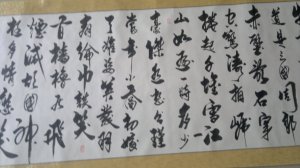 道是三國周郎
赤壁亂石穿
空驚濤拍岸
捲起千堆雪江
山如畫一時多少
豪傑遙想公瑾
當年小喬初嫁
了雄姿英發羽
扇綸巾談笑
間檣櫓灰飛
煙滅故國神
遊多情應笑